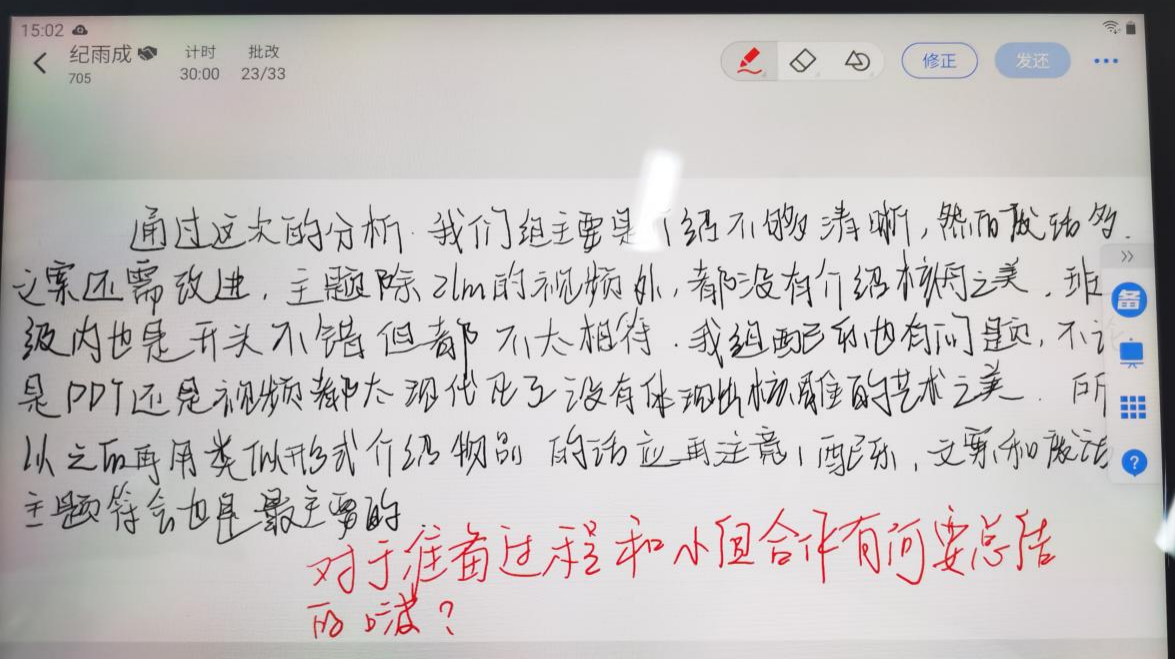 15:02
纪雨成
705
计时
30:00
批改
23/33
修正
发还
通过这次的分析.我们组主要是介绍不够清晰,然而废话多.
文案还需改进.主题除21m的视频外,都没有介绍核雕之美.班
级内也是开头不错但都不太相符.我组配乐也有问题,不论
是PPT还是视频都太现代化了没有体现出核雕的艺术之美.所
以之后再用类似形式介绍物品的话应再注意,配乐,文案和废话
主题符合也是最主要的
对于准备过程和小组合作有何要总结
的啵?
备
?